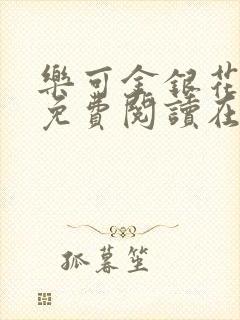 樂可金銀花
免費閱讀在
孤暮笙